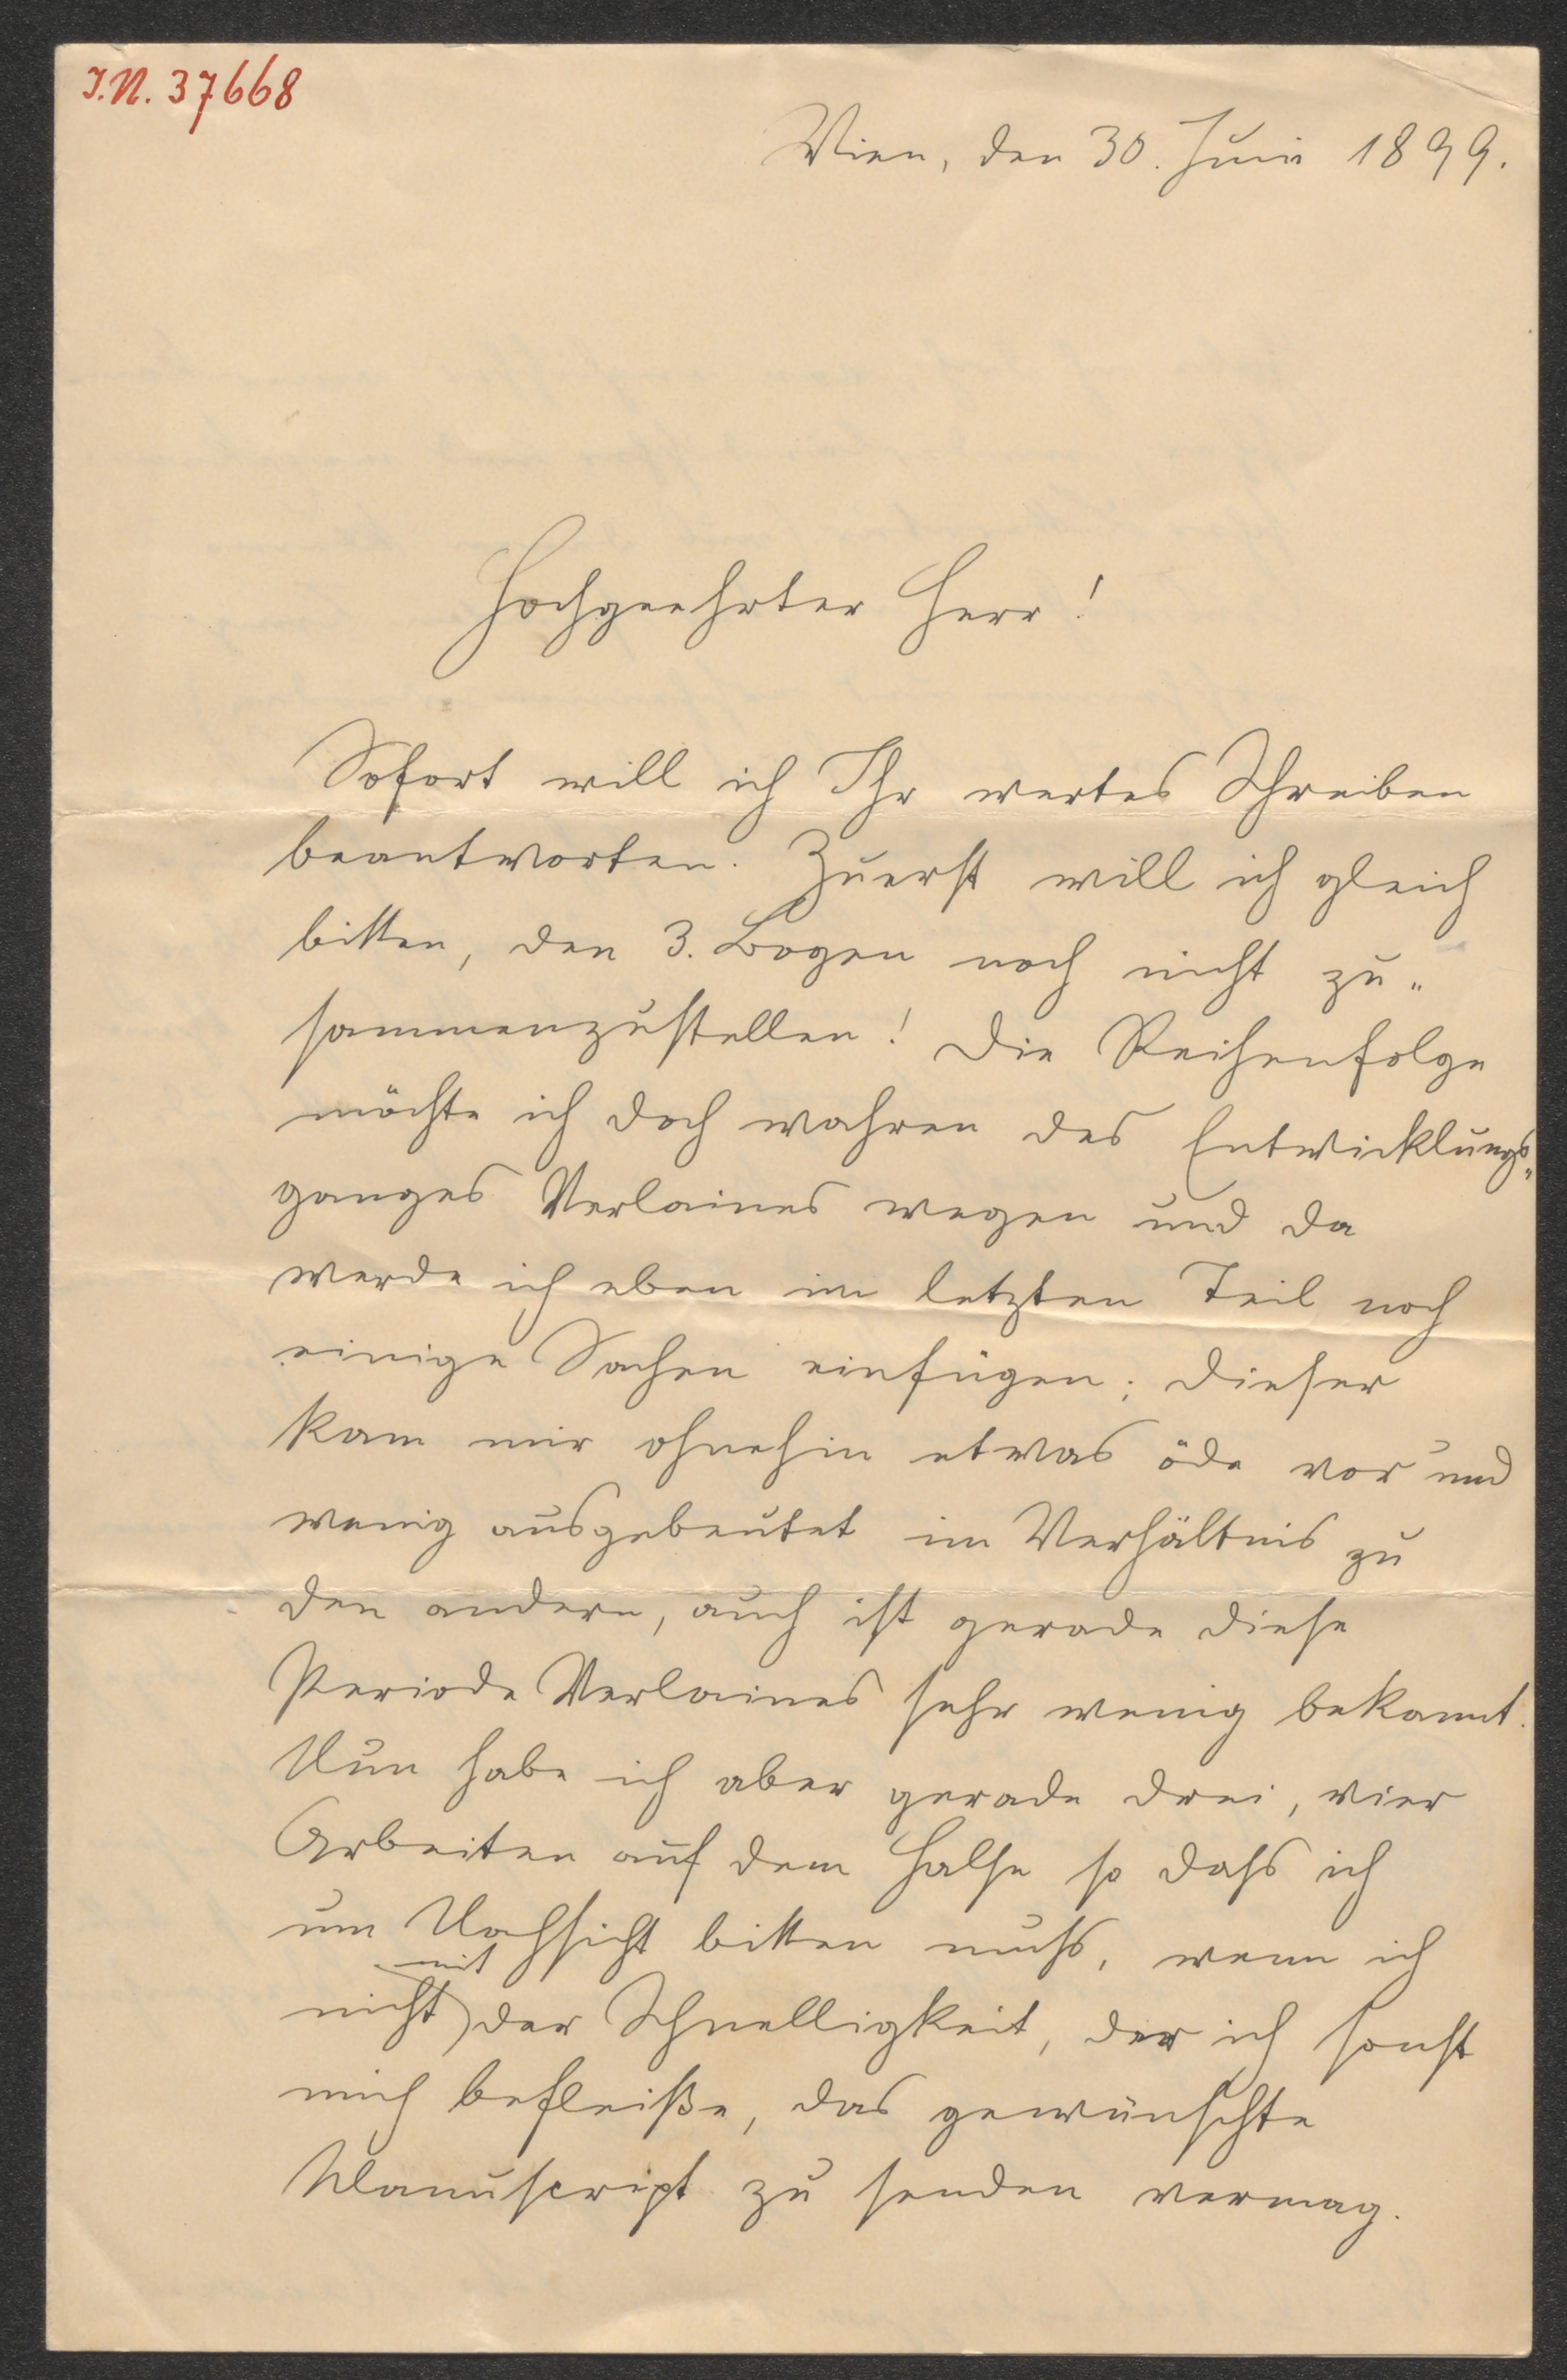 I.N. 37668
Wien, den 30. Juni 1899.
Hochgeehrter Herr!
Sofort will ich Ihr wertes Schreiben
beantworten. Zuerst will ich gleich
bitten, den 3. Bogen noch nicht zu=
sammenzustellen! Die Reihenfolge
möchte ich doch wahren des Entwicklungs=
ganges Verlaines wegen und da
werde ich eben im letzten Teil noch
einige Sachen einfügen; dieser
kam mir ohnehin etwas öde vor und
wenig ausgebeutet im Verhältnis zu
den andern, auch ist gerade diese
Periode Verlaines sehr wenig bekannt.
Nun habe ich aber gerade drei, vier
Arbeiten auf dem Halse so dass ich
um Nachsicht bitten muss, wenn ich
nicht mit der Schnelligkeit, der ich sonst
mich befleiße, das gewünschte
Manuscript zu senden vermag.